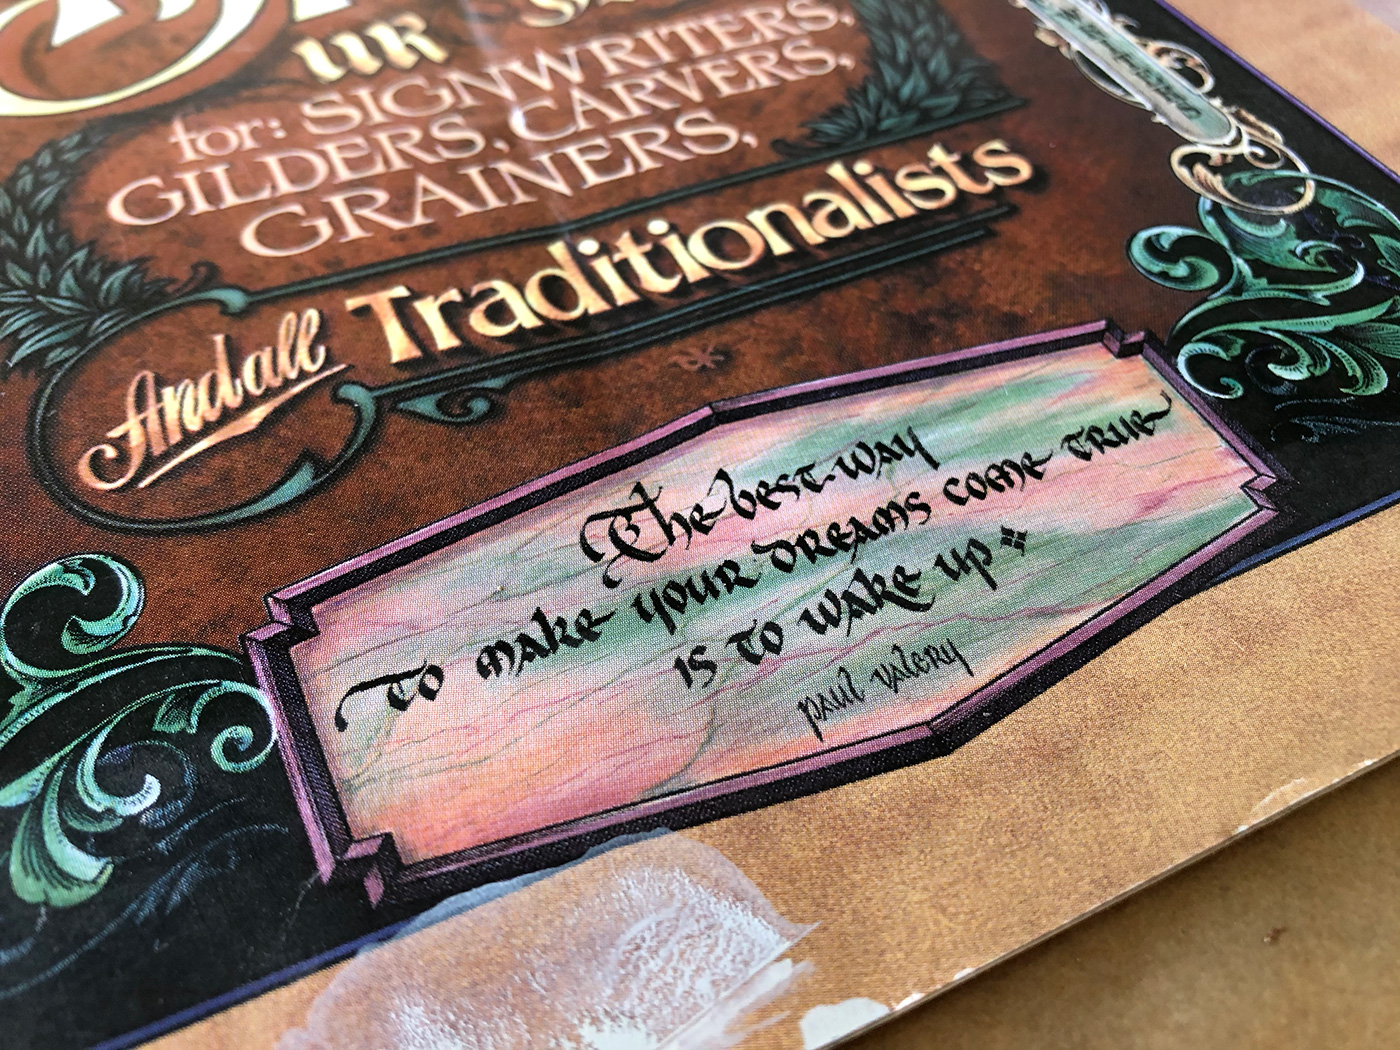 for: SIGNWRITERS,
GILDERS, CARVERS,
GRAINERS,
And all Traditionalists
The best way
To make your dreams come true
is to wake up
paul valery